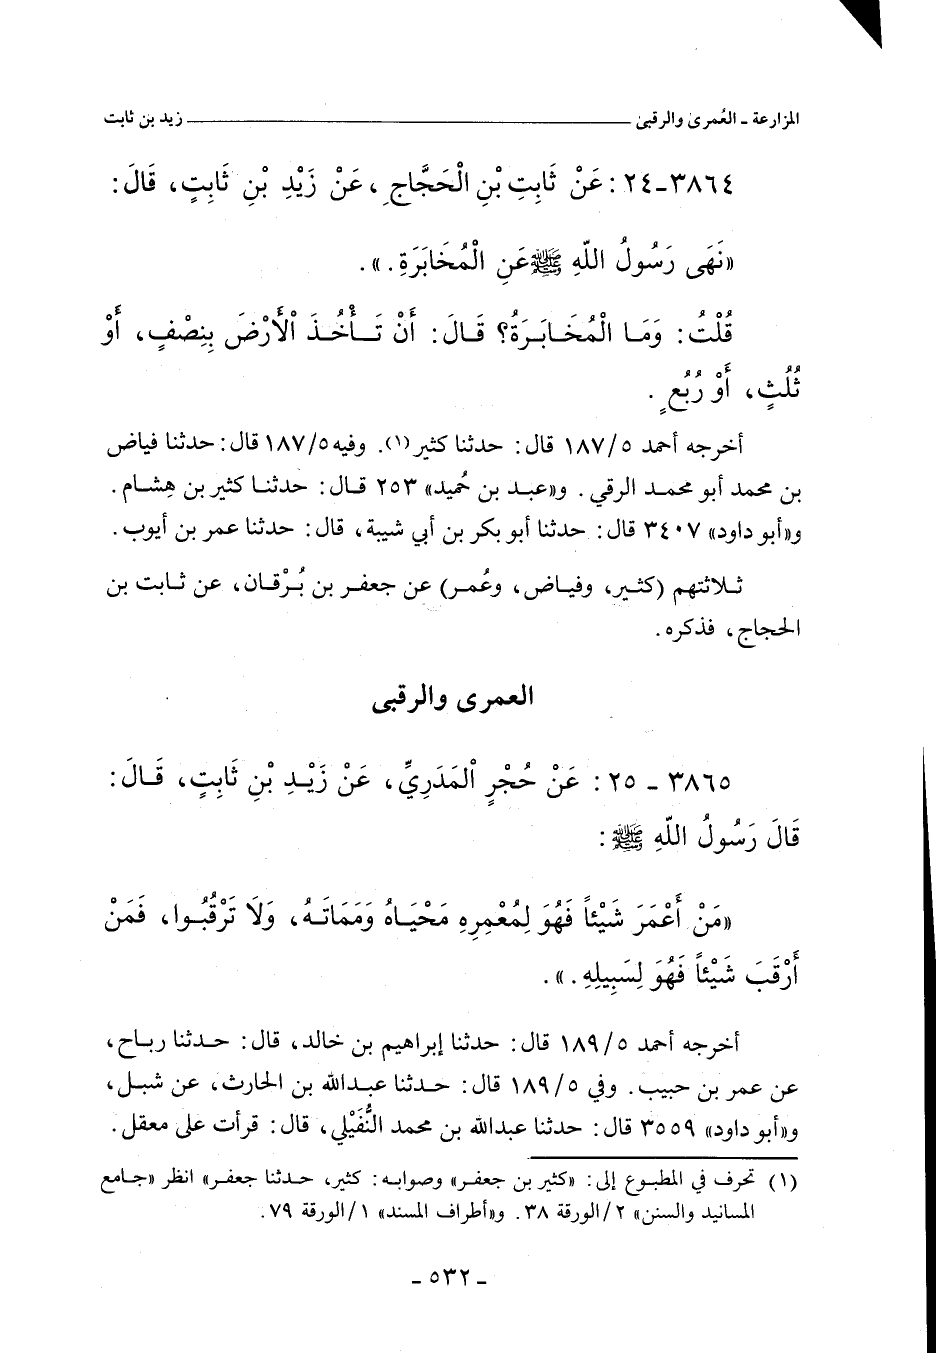 المزارعة - العُمرى والرقبى زيد بن ثابت
٣٨٦٤-٢٤ : عَنْ ثَابِتِ بْنِ الْحَجَّاجِ ، عَنْ زَيْدِ بْنِ ثَابِتٍ، قَالَ:
«نَهَى رَسُولُ اللّهِ ﷺ عَنِ الْمُخَابَرَةِ .».
قُلْتُ: وَمَا الْمُخَابَرَةُ؟ قَالَ: أَنْ تَأْخُذَ الْأَرْضَ بِنِصْفٍ، أَوْ
ثُلُثٍ، أَوْ رُبُعٍ .
أخرجه أحمد ١٨٧/٥ قال: حدثنا كثير (١). وفيه ١٨٧/٥ قال: حدثنا فياض
بن محمد أبو محمد الرقي. و«عبد بن حُميد» ٢٥٣ قال: حدثنا كثير بن هِشام.
و«أبو داود» ٣٤٠٧ قال: حدثنا أبو بكر بن أبي شيبة، قال: حدثنا عمر بن أيوب.
ثلاثتهم (كثير، وفياض، وعُمر) عن جعفر بن بُرْقان، عن ثابت بن
الحجاج، فذكره.
العمرى والرقبى
٣٨٦٥ - ٢٥ : عَنْ حُجْرٍ الْمَدَرِيِّ، عَنْ زَيْدِ بْنِ ثَابِتٍ، قَالَ:
قَالَ رَسُولُ اللّهِ ﷺ :
«مَنْ أَعْمَرَ شَيْئاً فَهُوَ لِمُعْمِرِهِ مَحْيَاهُ وَمَمَاتَهُ، وَلَا تَرْقُبُوا، فَمَنْ
أَرْقَبَ شَيْئاً فَهُوَ لِسَبِيلِهِ .».
أخرجه أحمد ١٨٩/٥ قال: حدثنا إبراهيم بن خالد، قال: حدثنا رباح،
عن عمر بن حبيب. وفي ١٨٩/٥ قال: حدثنا عبدالله بن الحارث، عن شبل،
و«أبو داود» ٣٥٥٩ قال: حدثنا عبدالله بن محمد النُّفَيْلي، قال: قرأت على معقل.
(١) تحرف في المطبوع إلى: «كثير بن جعفر» وصوابه: كثير، حدثنا جعفر» انظر «جامع
المسانيد والسنن» ٢/الورقة ٣٨. و«أطراف المسند» ١/الورقة ٧٩.
- ٥٣٢ -